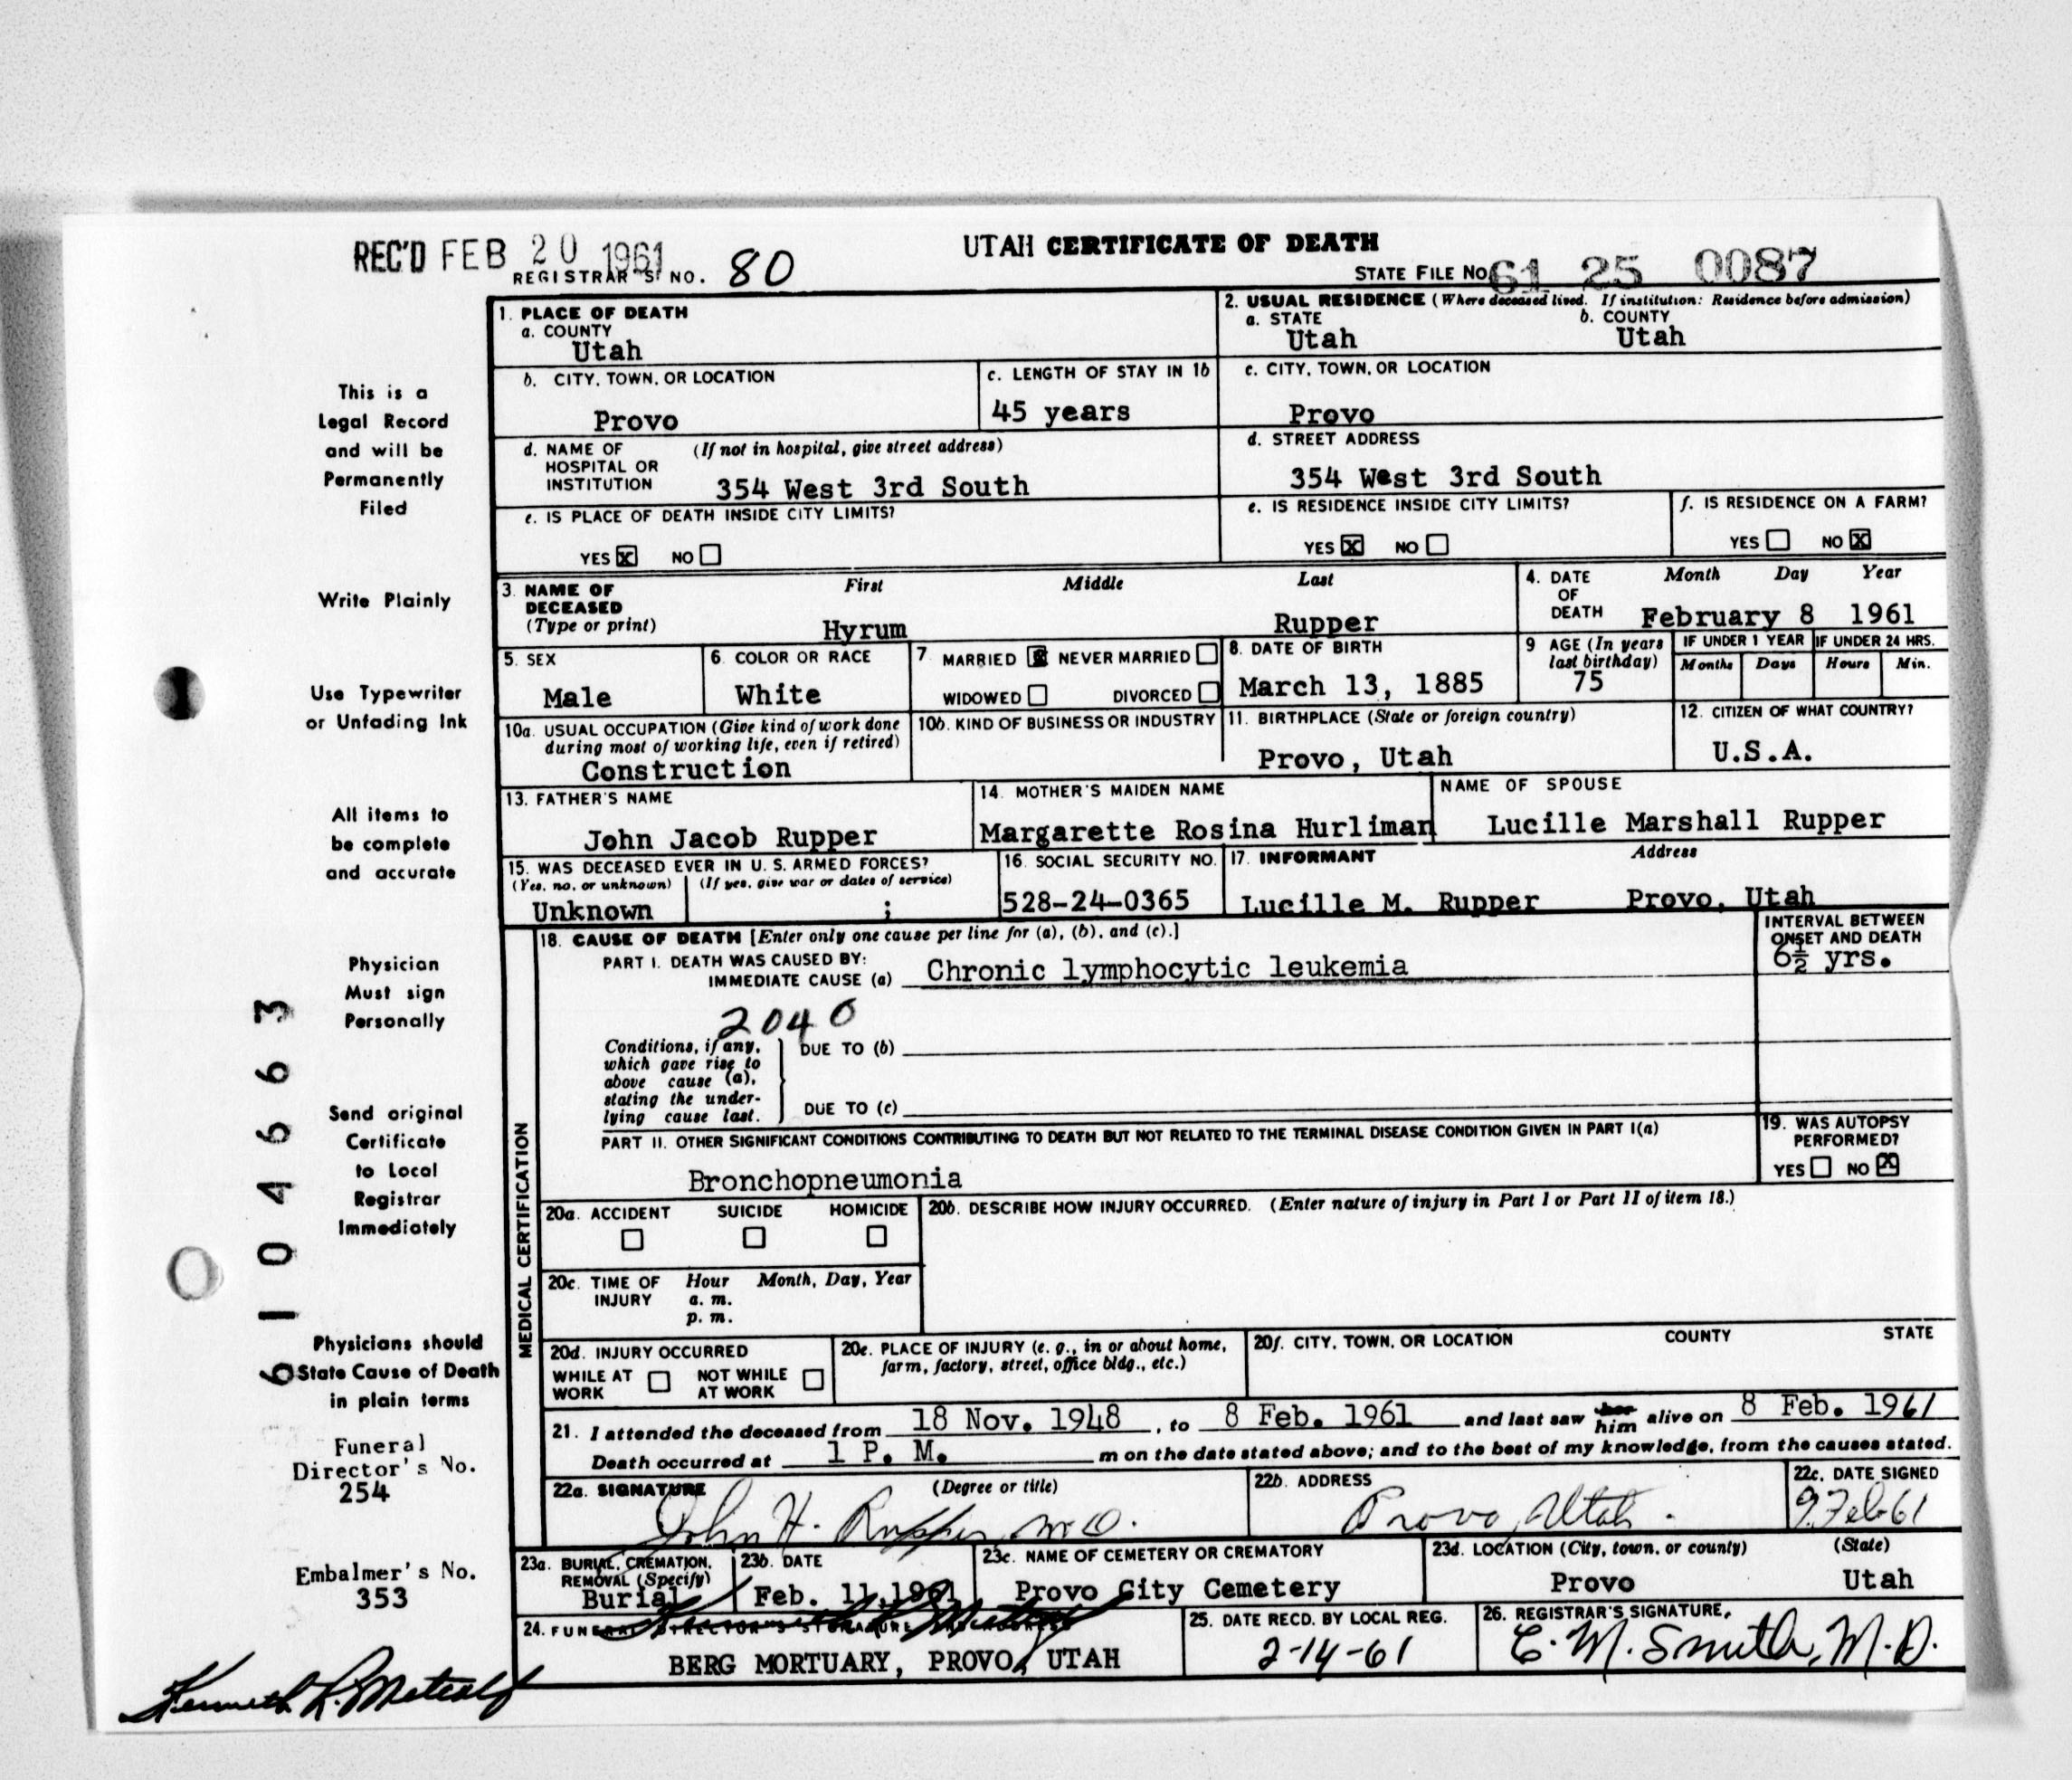 UTAH CERTIFICATE OF DEATH
REC'D FEB 20 1961
REGISTRAR'S NO. 80
STATE FILE NO. 61 25 0087
1. PLACE OF DEATH
a. COUNTY
Utah
2. USUAL RESIDENCE (Where deceased lived. If institution: Residence before admission)
a. STATE b. COUNTY
Utah Utah
b. CITY, TOWN, OR LOCATION
Provo
c. LENGTH OF STAY IN 1b
45 years
c. CITY, TOWN, OR LOCATION
Provo
d. NAME OF (If not in hospital, give street address)
HOSPITAL OR
INSTITUTION 354 West 3rd South
d. STREET ADDRESS
354 West 3rd South
e. IS PLACE OF DEATH INSIDE CITY LIMITS?
YES X NO
e. IS RESIDENCE INSIDE CITY LIMITS?
YES X NO
f. IS RESIDENCE ON A FARM?
YES NO X
3. NAME OF First Middle Last
DECEASED
(Type or print) Hyrum Rupper
4. DATE Month Day Year
OF
DEATH February 8 1961
5. SEX
Male
6. COLOR OR RACE
White
7. MARRIED X NEVER MARRIED
WIDOWED DIVORCED
8. DATE OF BIRTH
March 13, 1885
9 AGE (In years
last birthday)
75
IF UNDER 1 YEAR IF UNDER 24 HRS.
Months Days Hours Min.
10a. USUAL OCCUPATION (Give kind of work done
during most of working life, even if retired)
Construction
10b. KIND OF BUSINESS OR INDUSTRY
11. BIRTHPLACE (State or foreign country)
Provo, Utah
12. CITIZEN OF WHAT COUNTRY?
U.S.A.
13. FATHER'S NAME
John Jacob Rupper
14. MOTHER'S MAIDEN NAME
Margarette Rosina Hurliman
NAME OF SPOUSE
Lucille Marshall Rupper
15. WAS DECEASED EVER IN U. S. ARMED FORCES?
(Yes, no, or unknown) (If yes, give war or dates of service)
Unknown ;
16. SOCIAL SECURITY NO.
528-24-0365
17. INFORMANT Address
Lucille M. Rupper Provo, Utah
18. CAUSE OF DEATH [Enter only one cause per line for (a), (b), and (c).]
PART I. DEATH WAS CAUSED BY:
IMMEDIATE CAUSE (a) Chronic lymphocytic leukemia
INTERVAL BETWEEN
ONSET AND DEATH
6½ yrs.
2040
Conditions, if any, DUE TO (b)
which gave rise to
above cause (a),
stating the under-
lying cause last. DUE TO (c)
PART II. OTHER SIGNIFICANT CONDITIONS CONTRIBUTING TO DEATH BUT NOT RELATED TO THE TERMINAL DISEASE CONDITION GIVEN IN PART I(a)
Bronchopneumonia
19. WAS AUTOPSY
PERFORMED?
YES NO X
MEDICAL CERTIFICATION
20a. ACCIDENT SUICIDE HOMICIDE
20b. DESCRIBE HOW INJURY OCCURRED. (Enter nature of injury in Part I or Part II of item 18.)
20c. TIME OF Hour Month, Day, Year
INJURY a. m.
p. m.
20d. INJURY OCCURRED
WHILE AT NOT WHILE
WORK AT WORK
20e. PLACE OF INJURY (e. g., in or about home,
farm, factory, street, office bldg., etc.)
20f. CITY, TOWN, OR LOCATION COUNTY STATE
21. I attended the deceased from 18 Nov. 1948, to 8 Feb. 1961 and last saw her him alive on 8 Feb. 1961
Death occurred at 1 P. M. m on the date stated above; and to the best of my knowledge, from the causes stated.
22a. SIGNATURE (Degree or title)
John H. Rupper, M.D.
22b. ADDRESS
Provo, Utah.
22c. DATE SIGNED
9 Feb 61
23a. BURIAL, CREMATION,
REMOVAL (Specify)
Burial
23b. DATE
Feb. 11, 1961
23c. NAME OF CEMETERY OR CREMATORY
Provo City Cemetery
23d. LOCATION (City, town, or county) (State)
Provo Utah
24. FUNERAL DIRECTOR'S SIGNATURE AND ADDRESS
BERG MORTUARY, PROVO, UTAH
25. DATE RECD. BY LOCAL REG.
2-14-61
26. REGISTRAR'S SIGNATURE
C. M. Smith, M.D.
This is a
Legal Record
and will be
Permanently
Filed
Write Plainly
Use Typewriter
or Unfading Ink
All items to
be complete
and accurate
Physician
Must sign
Personally
Send original
Certificate
to Local
Registrar
Immediately
Physicians should
State Cause of Death
in plain terms
Funeral
Director's No.
254
Embalmer's No.
353
Kenneth L. Metcalf
6104663